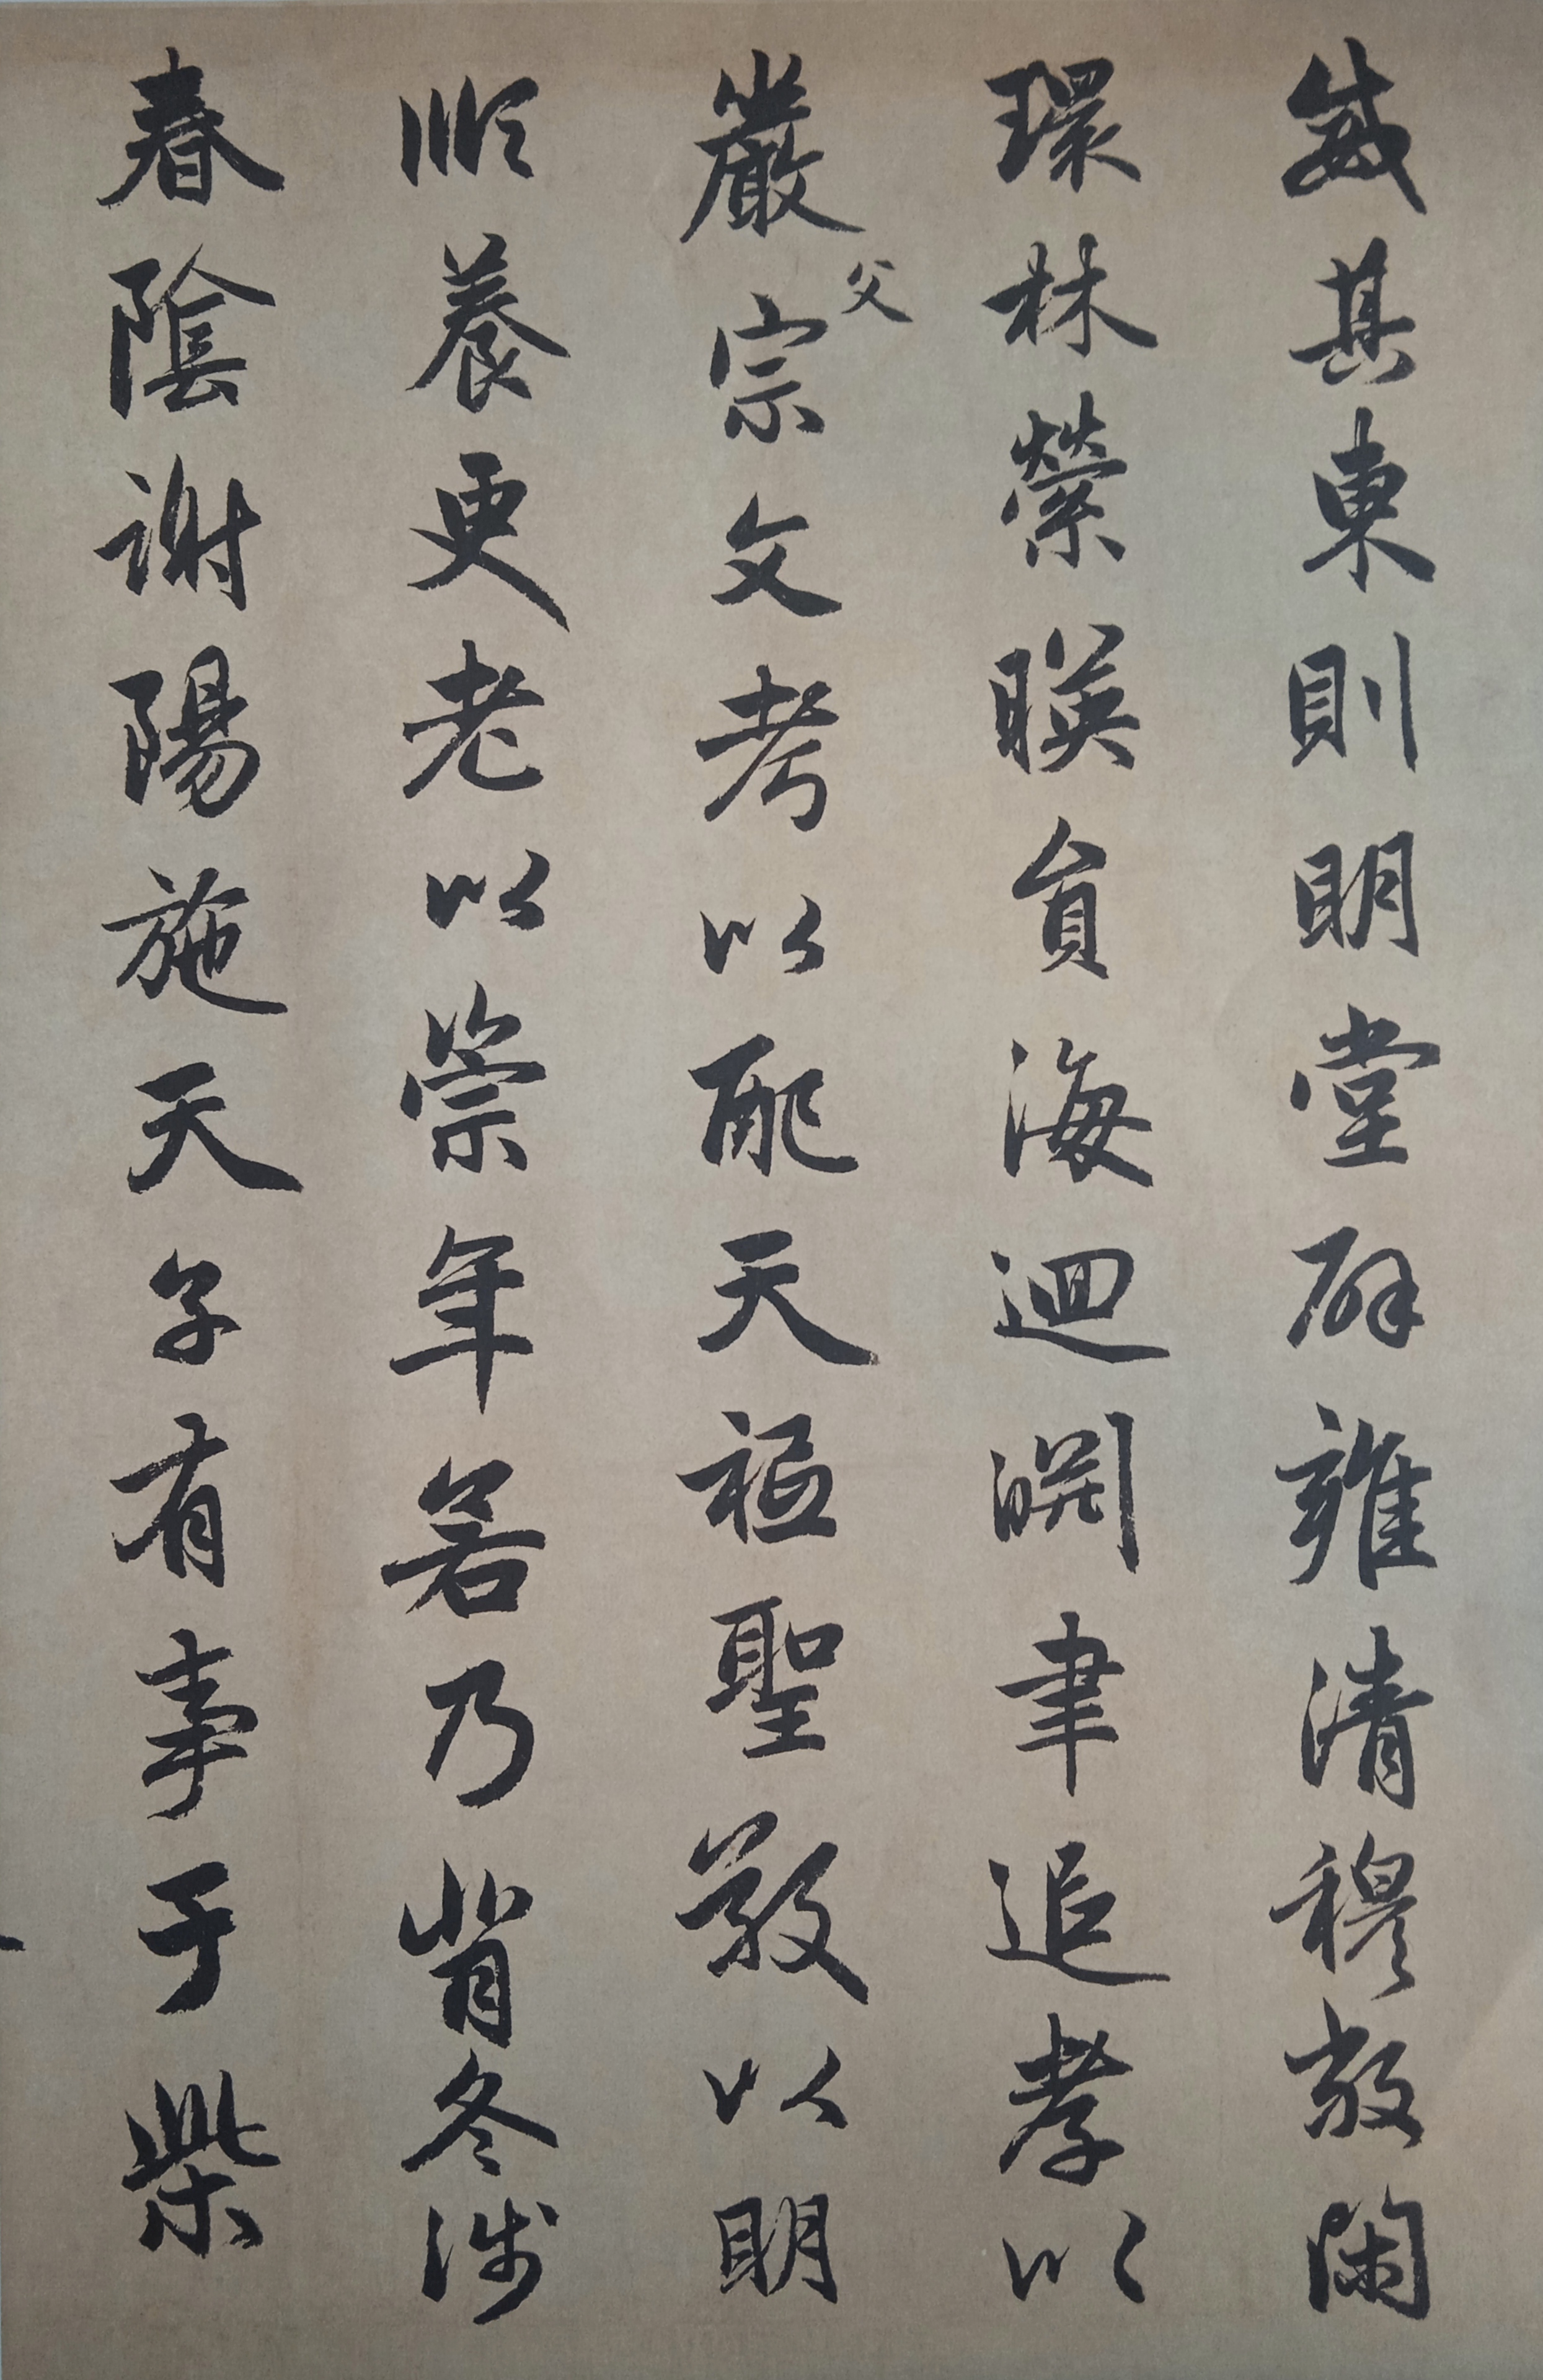 威其東則明堂辟雍清穆敞閑
環林縈暎員海迴淵聿追孝以
嚴父宗文考以配天祗聖敬以明
順養更老以崇年若乃背冬涉
春陰謝陽施天子有事于柴